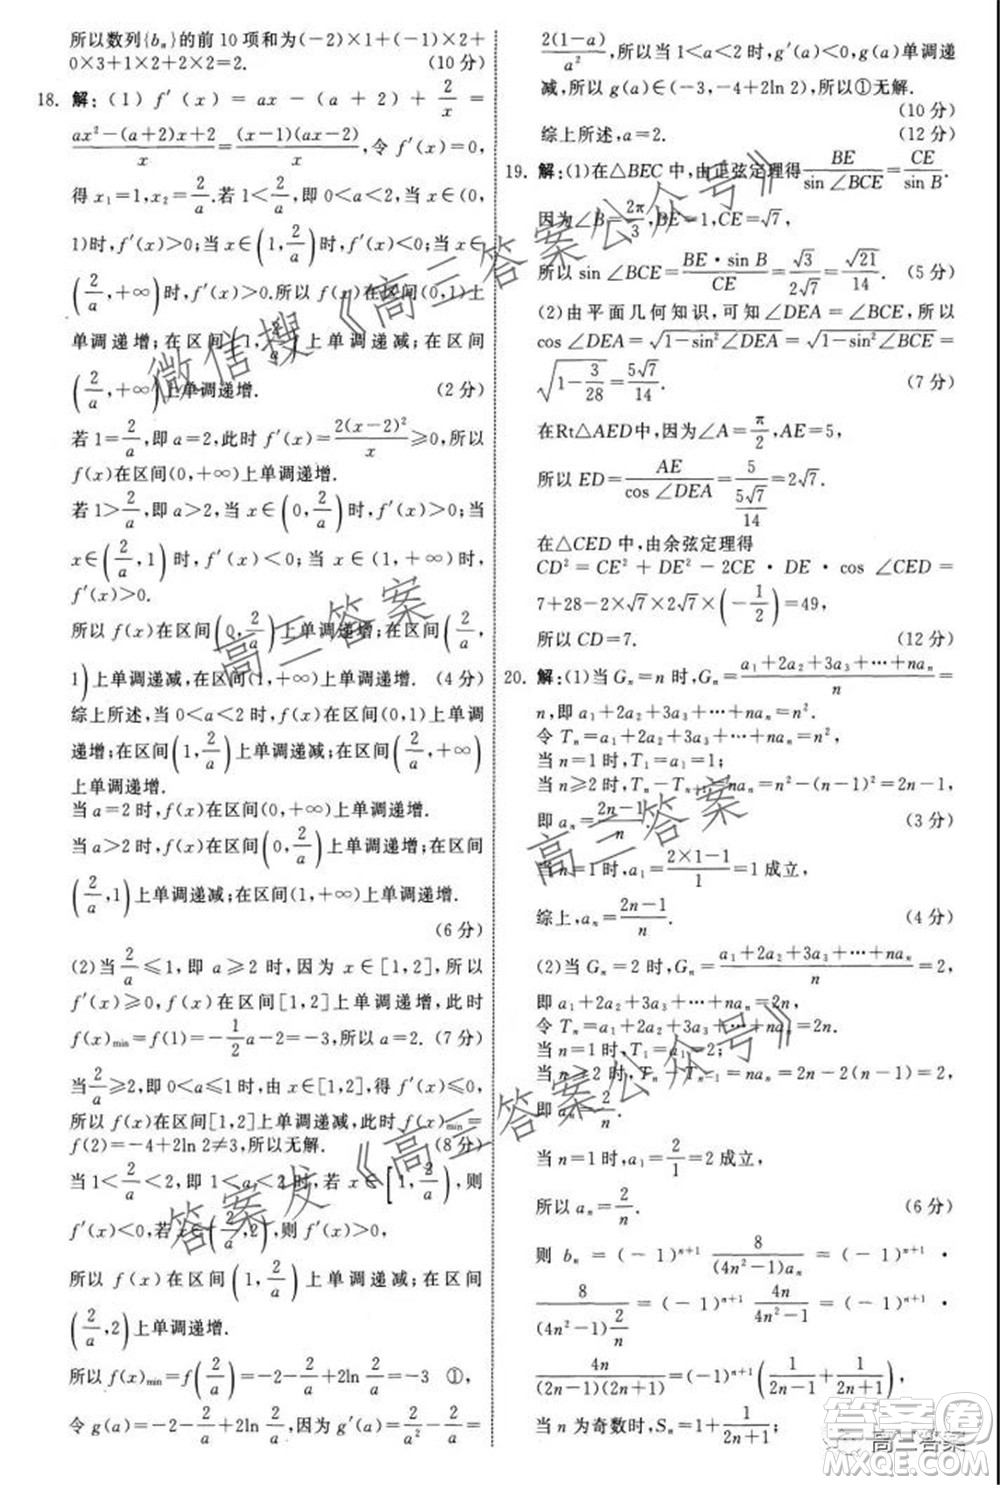 所以数列{bₙ}的前10项和为(-2)×1+(-1)×2+
0×3+1×2+2×2=2. (10分)
18. 解:(1) f′(x)=ax-(a+2)+2/x=
(ax²-(a+2)x+2)/x=((x-1)(ax-2))/x,令f′(x)=0,
得x₁=1,x₂=2/a.若1<2/a,即0<a<2,当x∈(0,
1)时,f′(x)>0;当x∈(1,2/a)时,f′(x)<0;当x∈
(2/a,+∞)时,f′(x)>0.所以f(x)在区间(0,1)上
单调递增;在区间(1,2/a)上单调递减;在区间
(2/a,+∞)上单调递增. (2分)
若1=2/a,即a=2,此时f′(x)=2(x-2)²/x≥0,所以
f(x)在区间(0,+∞)上单调递增.
若1>2/a,即a>2,当x∈(0,2/a)时,f′(x)>0;当
x∈(2/a,1)时,f′(x)<0;当x∈(1,+∞)时,
f′(x)>0.
所以f(x)在区间(0,2/a)上单调递增;在区间(2/a,
1)上单调递减,在区间(1,+∞)上单调递增. (4分)
综上所述,当0<a<2时,f(x)在区间(0,1)上单调
递增;在区间(1,2/a)上单调递减;在区间(2/a,+∞)
上单调递增.
当a=2时,f(x)在区间(0,+∞)上单调递增.
当a>2时,f(x)在区间(0,2/a)上单调递增;在区间
(2/a,1)上单调递减;在区间(1,+∞)上单调递增.
(6分)
(2)当2/a≤1,即a≥2时,因为x∈[1,2],所以
f′(x)≥0,f(x)在区间[1,2]上单调递增,此时
f(x)min=f(1)=-1/2a-2=-3,所以a=2. (7分)
当2/a≥2,即0<a≤1时,由x∈[1,2]得f′(x)≤0,
所以f(x)在区间[1,2]上单调递减,此时f(x)min=
f(2)=-4+2ln 2≠3,所以无解. (8分)
当1<2/a<2,即1<a<2时,若x∈[1,2/a),则
f′(x)<0,若x∈(2/a,2),则f′(x)>0,
所以f(x)在区间(1,2/a)上单调递减;在区间
(2/a,2)上单调递增.
所以f(x)min=f(2/a)=-2-2/a+2ln 2/a=-3 ①,
令g(a)=-2-2/a+2ln 2/a,因为g′(a)=2/a²-2/a=
2(1-a)/a²,所以当1<a<2时,g′(a)<0,g(a)单调递
减,所以g(a)∈(-3,-4+2ln 2),所以①无解.
(10分)
综上所述,a=2. (12分)
19. 解:(1)在△BEC中,由正弦定理得BE/sin∠BCE=CE/sin B.
因为∠B=2π/3,BE=1,CE=√7,
所以sin∠BCE=BE·sin B/CE=(√3)/(2√7)=√21/14. (5分)
(2)由平面几何知识,可知∠DEA=∠BCE,所以
cos∠DEA=√(1-sin²∠DEA)=√(1-sin²∠BCE)=
√(1-3/28)=5√7/14. (7分)
在Rt△AED中,因为∠A=π/2,AE=5,
所以ED=AE/cos∠DEA=5/(5√7/14)=2√7.
在△CED中,由余弦定理得
CD²=CE²+DE²-2CE·DE·cos∠CED=
7+28-2×√7×2√7×(-1/2)=49,
所以CD=7. (12分)
20. 解:(1)当Gₙ=n时,Gₙ=(a₁+2a₂+3a₃+⋯+naₙ)/n
=n,即a₁+2a₂+3a₃+⋯+naₙ=n².
令Tₙ=a₁+2a₂+3a₃+⋯+naₙ=n²,
当n=1时,T₁=a₁=1;
当n≥2时,Tₙ-Tₙ₋₁=naₙ=n²-(n-1)²=2n-1,
即aₙ=(2n-1)/n. (3分)
当n=1时,a₁=(2×1-1)/1=1成立,
综上,aₙ=(2n-1)/n. (4分)
(2)当Gₙ=2时,Gₙ=(a₁+2a₂+3a₃+⋯+naₙ)/n=2,
即a₁+2a₂+3a₃+⋯+naₙ=2n,
令Tₙ=a₁+2a₂+3a₃+⋯+naₙ=2n.
当n=1时,T₁=a₁=2;
当n≥2时,Tₙ-Tₙ₋₁=naₙ=2n-2(n-1)=2,
即aₙ=2/n.
当n=1时,a₁=2/1=2成立,
所以aₙ=2/n. (6分)
则bₙ=(-1)ⁿ⁺¹ 8/((4n²-1)aₙ)=(-1)ⁿ⁺¹·
8/((4n²-1)2/n)=(-1)ⁿ⁺¹ 4n/(4n²-1)=(-1)ⁿ⁺¹·
4n/((2n-1)(2n+1))=(-1)ⁿ⁺¹(1/(2n-1)+1/(2n+1)),
当n为奇数时,Sₙ=1+1/(2n+1).
微信搜《高三答案公众号》
高三答案
高三答案
答案发《高三答案公众号》
高三答案
答案圈
MXQE.COM